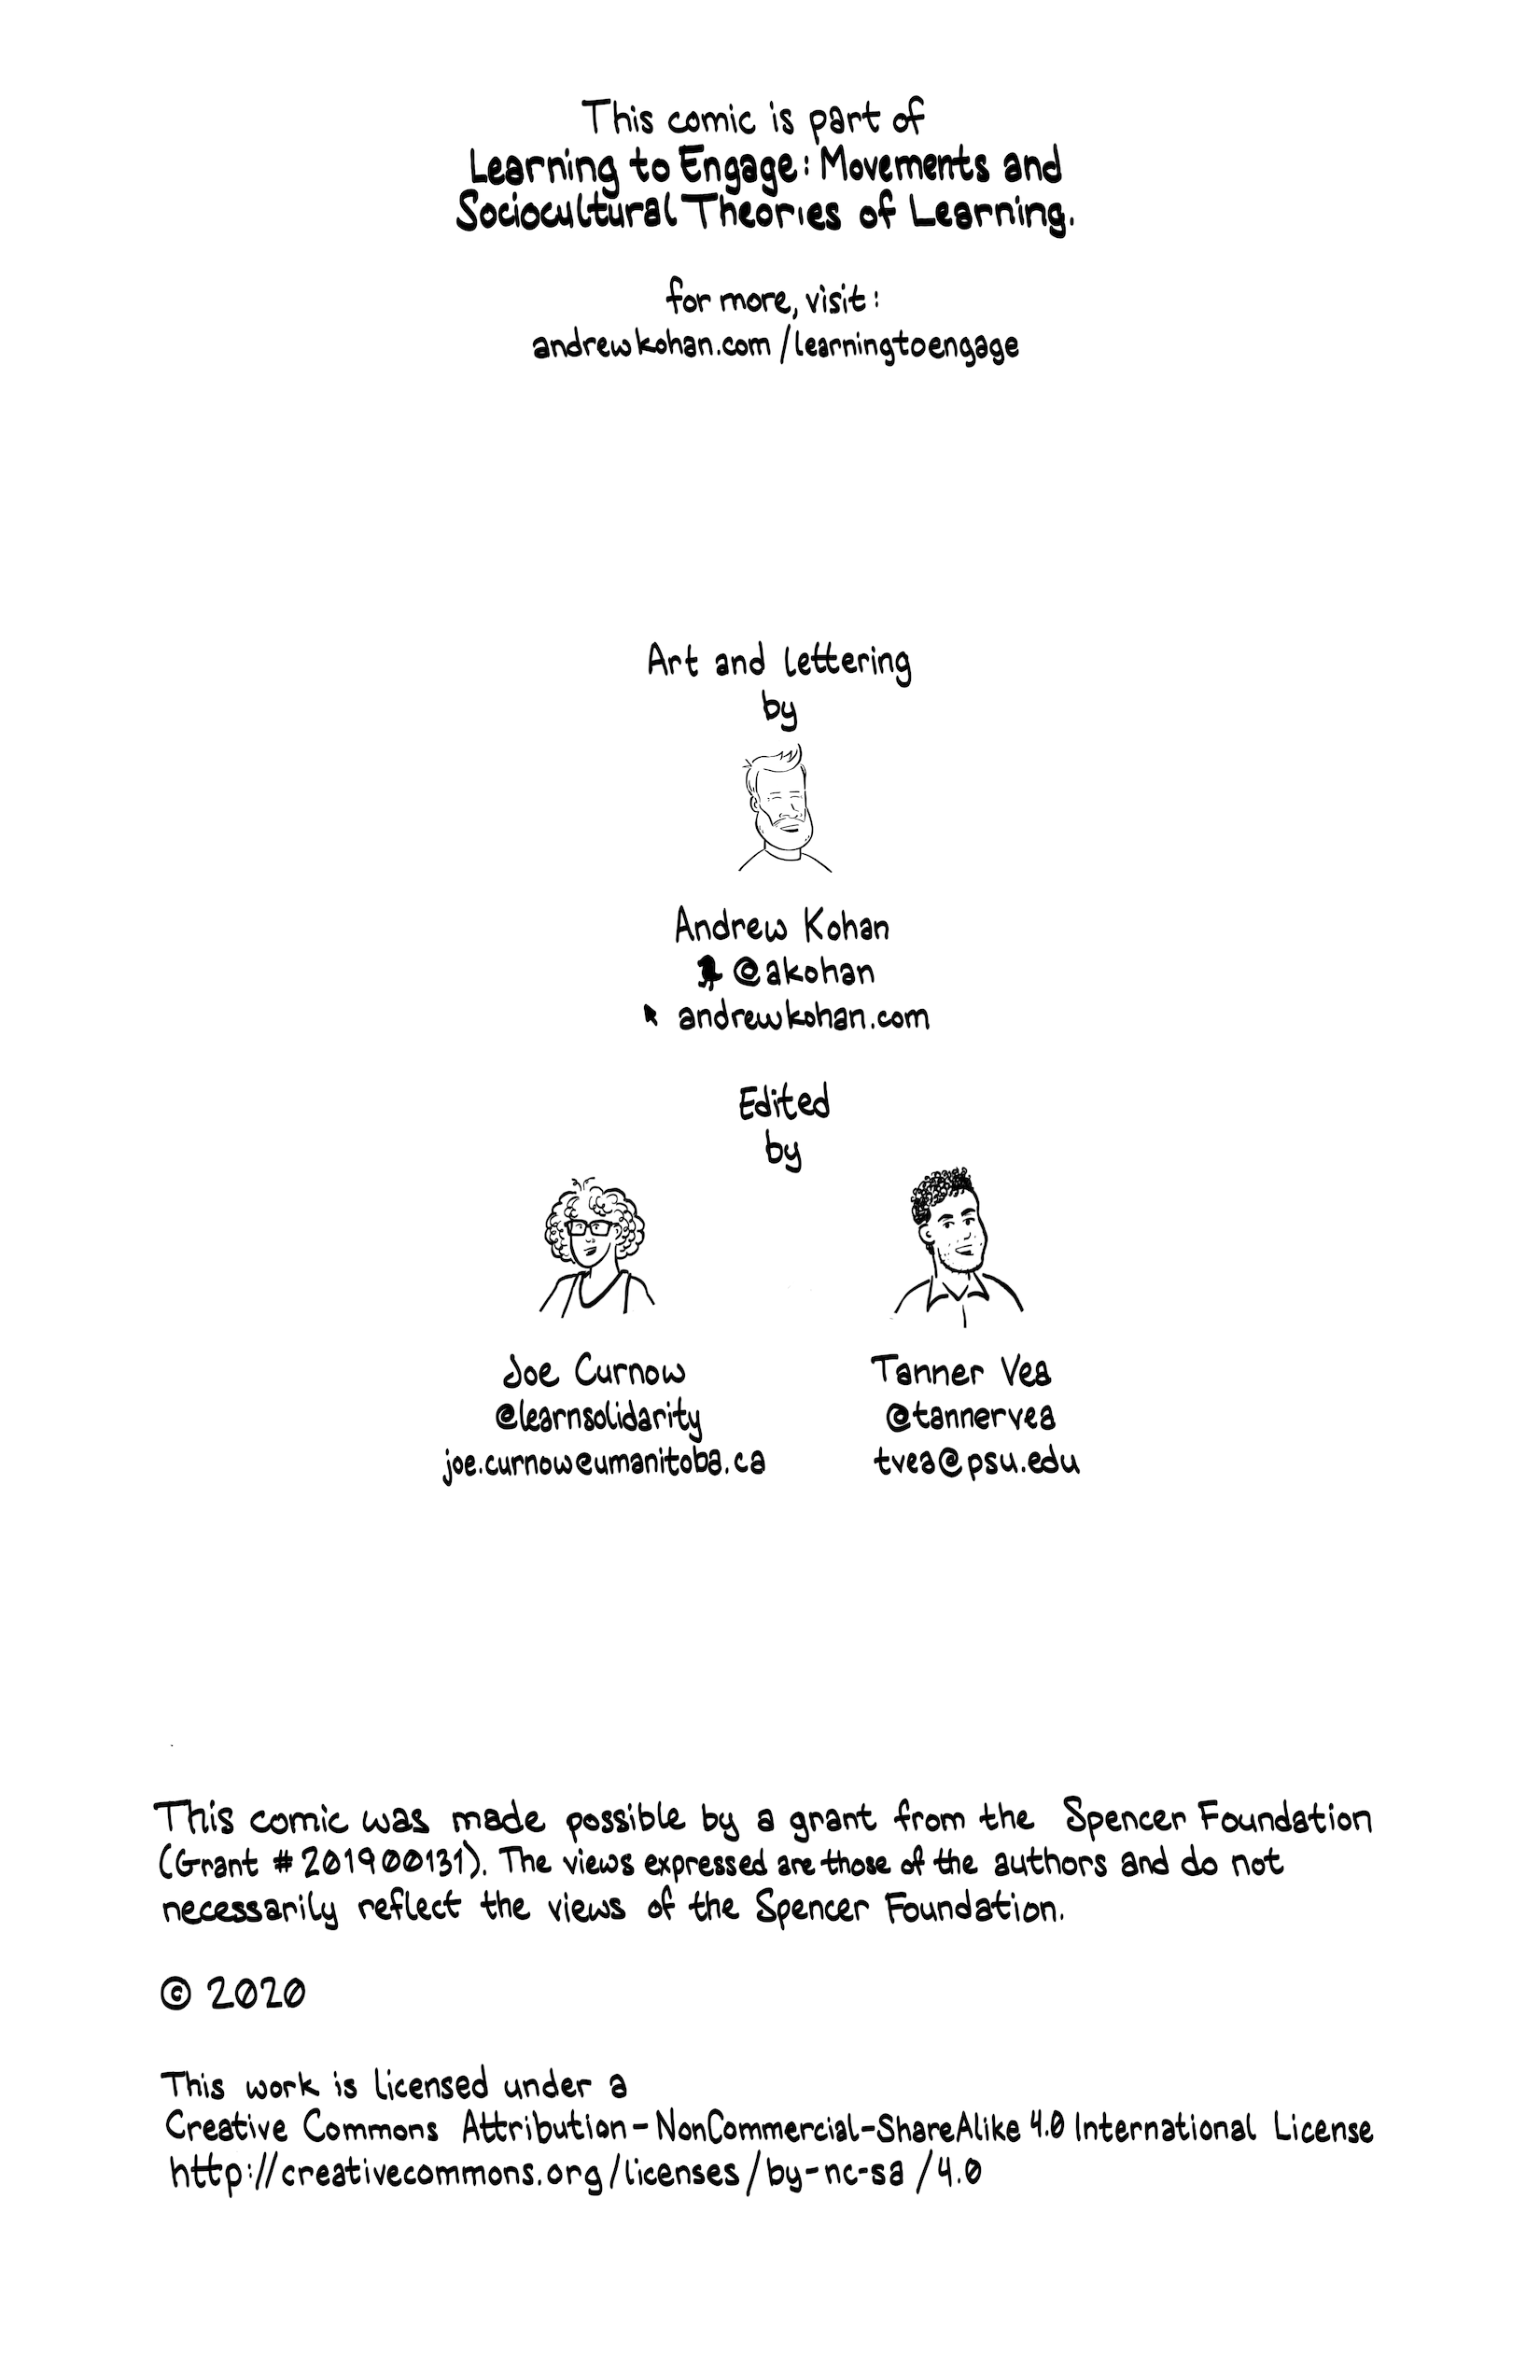 This comic is part of
Learning to Engage: Movements and
Sociocultural Theories of Learning.
for more, visit:
andrewkohan.com/learningtoengage
Art and lettering
by
Andrew Kohan
@akohan
andrewkohan.com
Edited
by
Joe Curnow
@learnsolidarity
joe.curnow@umanitoba.ca
Tanner Vea
@tannervea
tvea@psu.edu
This comic was made possible by a grant from the Spencer Foundation
(Grant #201900131). The views expressed are those of the authors and do not
necessarily reflect the views of the Spencer Foundation.
© 2020
This work is licensed under a
Creative Commons Attribution-NonCommercial-ShareAlike 4.0 International License
http://creativecommons.org/licenses/by-nc-sa/4.0